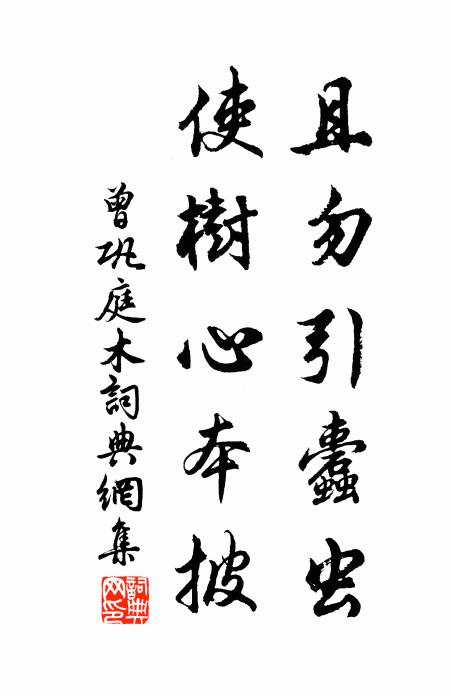 且勿引蠹虫
使樹心本披
曾巩庭木詞典網集
詞典网印